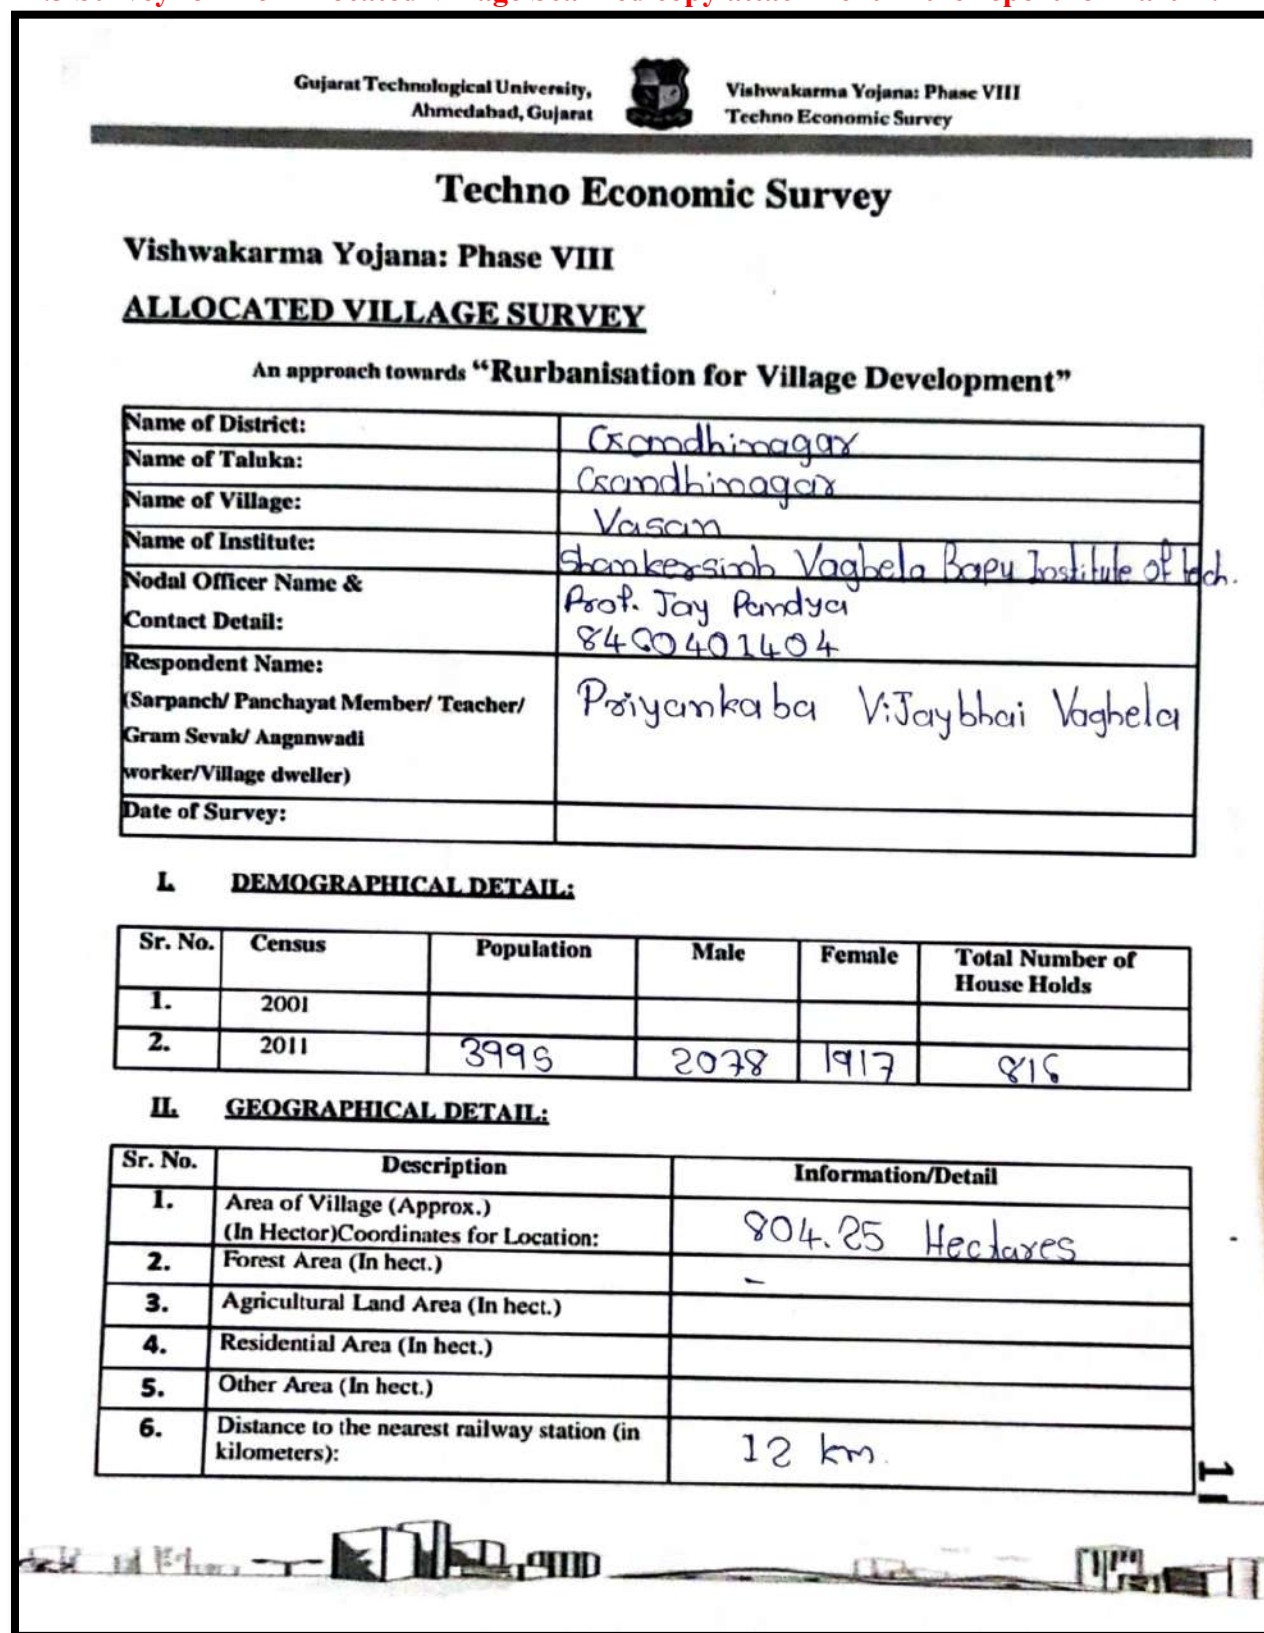 Gujarat Technological University,
Ahmedabad, Gujarat
Vishwakarma Yojana: Phase VIII
Techno Economic Survey
Techno Economic Survey
Vishwakarma Yojana: Phase VIII
ALLOCATED VILLAGE SURVEY
An approach towards “Rurbanisation for Village Development”
Name of District: Gandhinagar
Name of Taluka: Gandhinagar
Name of Village: Vasan
Name of Institute: Shankersinh Vaghela Bapu Institute of tech.
Nodal Officer Name & Prof. Jay Pandya
Contact Detail:
Respondent Name:
(Sarpanch/ Panchayat Member/ Teacher/ Priyankaba Vijaybhai Vaghela
Gram Sevak/ Aaganwadi
worker/Village dweller)
Date of Survey:
I. DEMOGRAPHICAL DETAIL:
Sr. No. Census Population Male Female Total Number of
House Holds
1. 2001
2. 2011 3995 2078 1917
II. GEOGRAPHICAL DETAIL:
Sr. No. Description Information/Detail
1. Area of Village (Approx.)
(In Hector)Coordinates for Location: 804.25 Hectares
2. Forest Area (In hect.) -
3. Agricultural Land Area (In hect.)
4. Residential Area (In hect.)
5. Other Area (In hect.)
6. Distance to the nearest railway station (in
kilometers): 12 km.